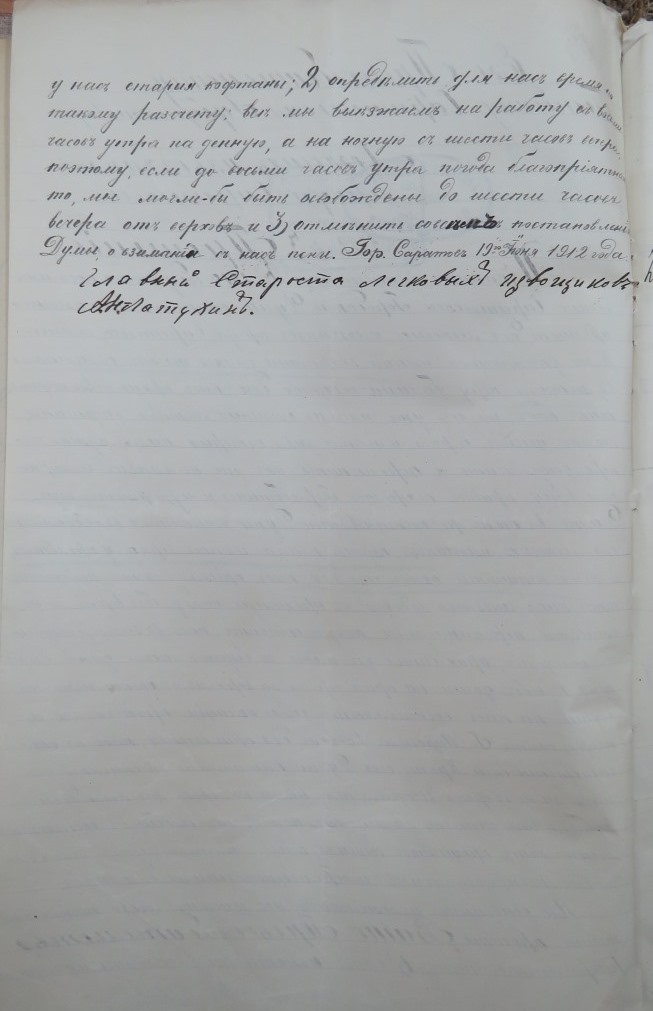 у насъ старыя кофтаны; 2) опредѣлить для насъ время по
такому разсчету: всѣ мы выѣзжаемъ на работу съ восьми
часовъ утра на денную, а на ночную съ шести часовъ вечера,
поэтому, если до восьми часовъ утра погода благопріятна
то, мы могли-бы быть освобождены до шести часовъ
вечера отъ верховъ и 3) отмѣнить совсѣмъ постановленіе
Думы о взиманіи съ насъ пени. Гор. Саратовъ 19 Іюня 1912 года.
Главный Староста легковыхъ извощиковъ
Латухинъ.